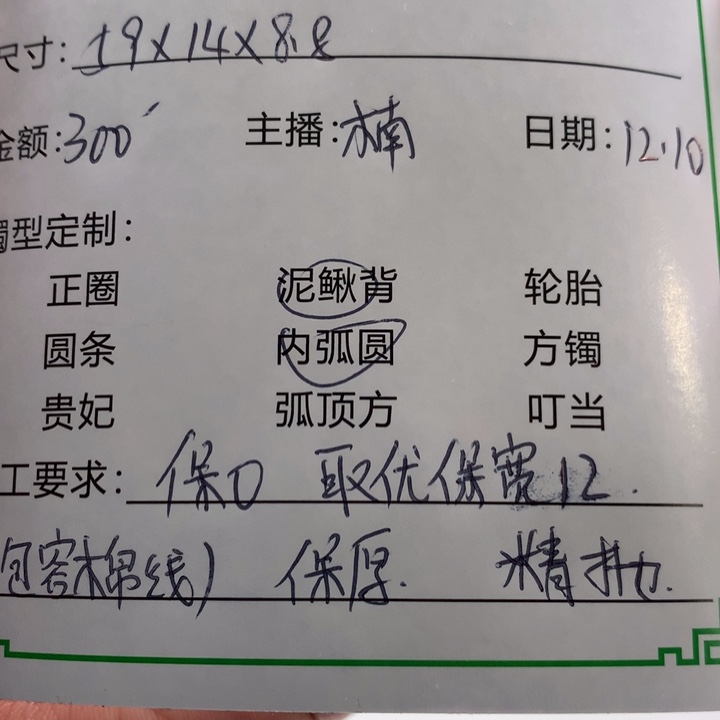 尺寸: 59×14×8.8
金额:300 主播:楠 日期:12.10
镯型定制:
正圈 泥鳅背 轮胎
圆条 内弧圆 方镯
贵妃 弧顶方 叮当
工要求: 保口 取优保宽12.
包容棉线) 保厚. 精抛.